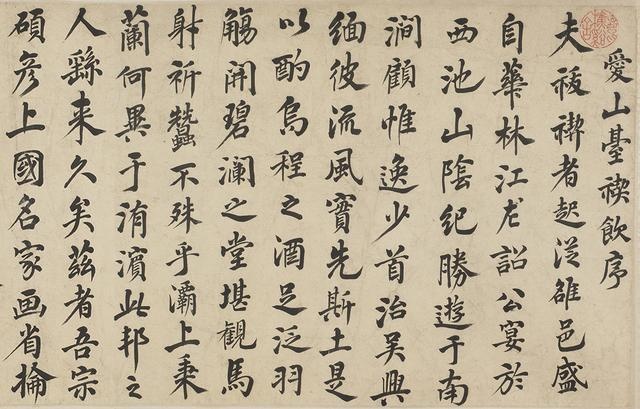 愛山臺禊飲序
夫祓禊者起從雒邑盛
自華林江左詔公宴於
西池山陰紀勝遊于南
澗顧惟逸少首治吳興
緬彼流風實先斯土是
以酌烏程之酒足泛羽
觴開碧瀾之堂堪觀馬
射祈蠶不殊乎灞上秉
蘭何異于洧濱此邦之
人繇来久矣茲者吾宗
碩彥上國名家画省掄